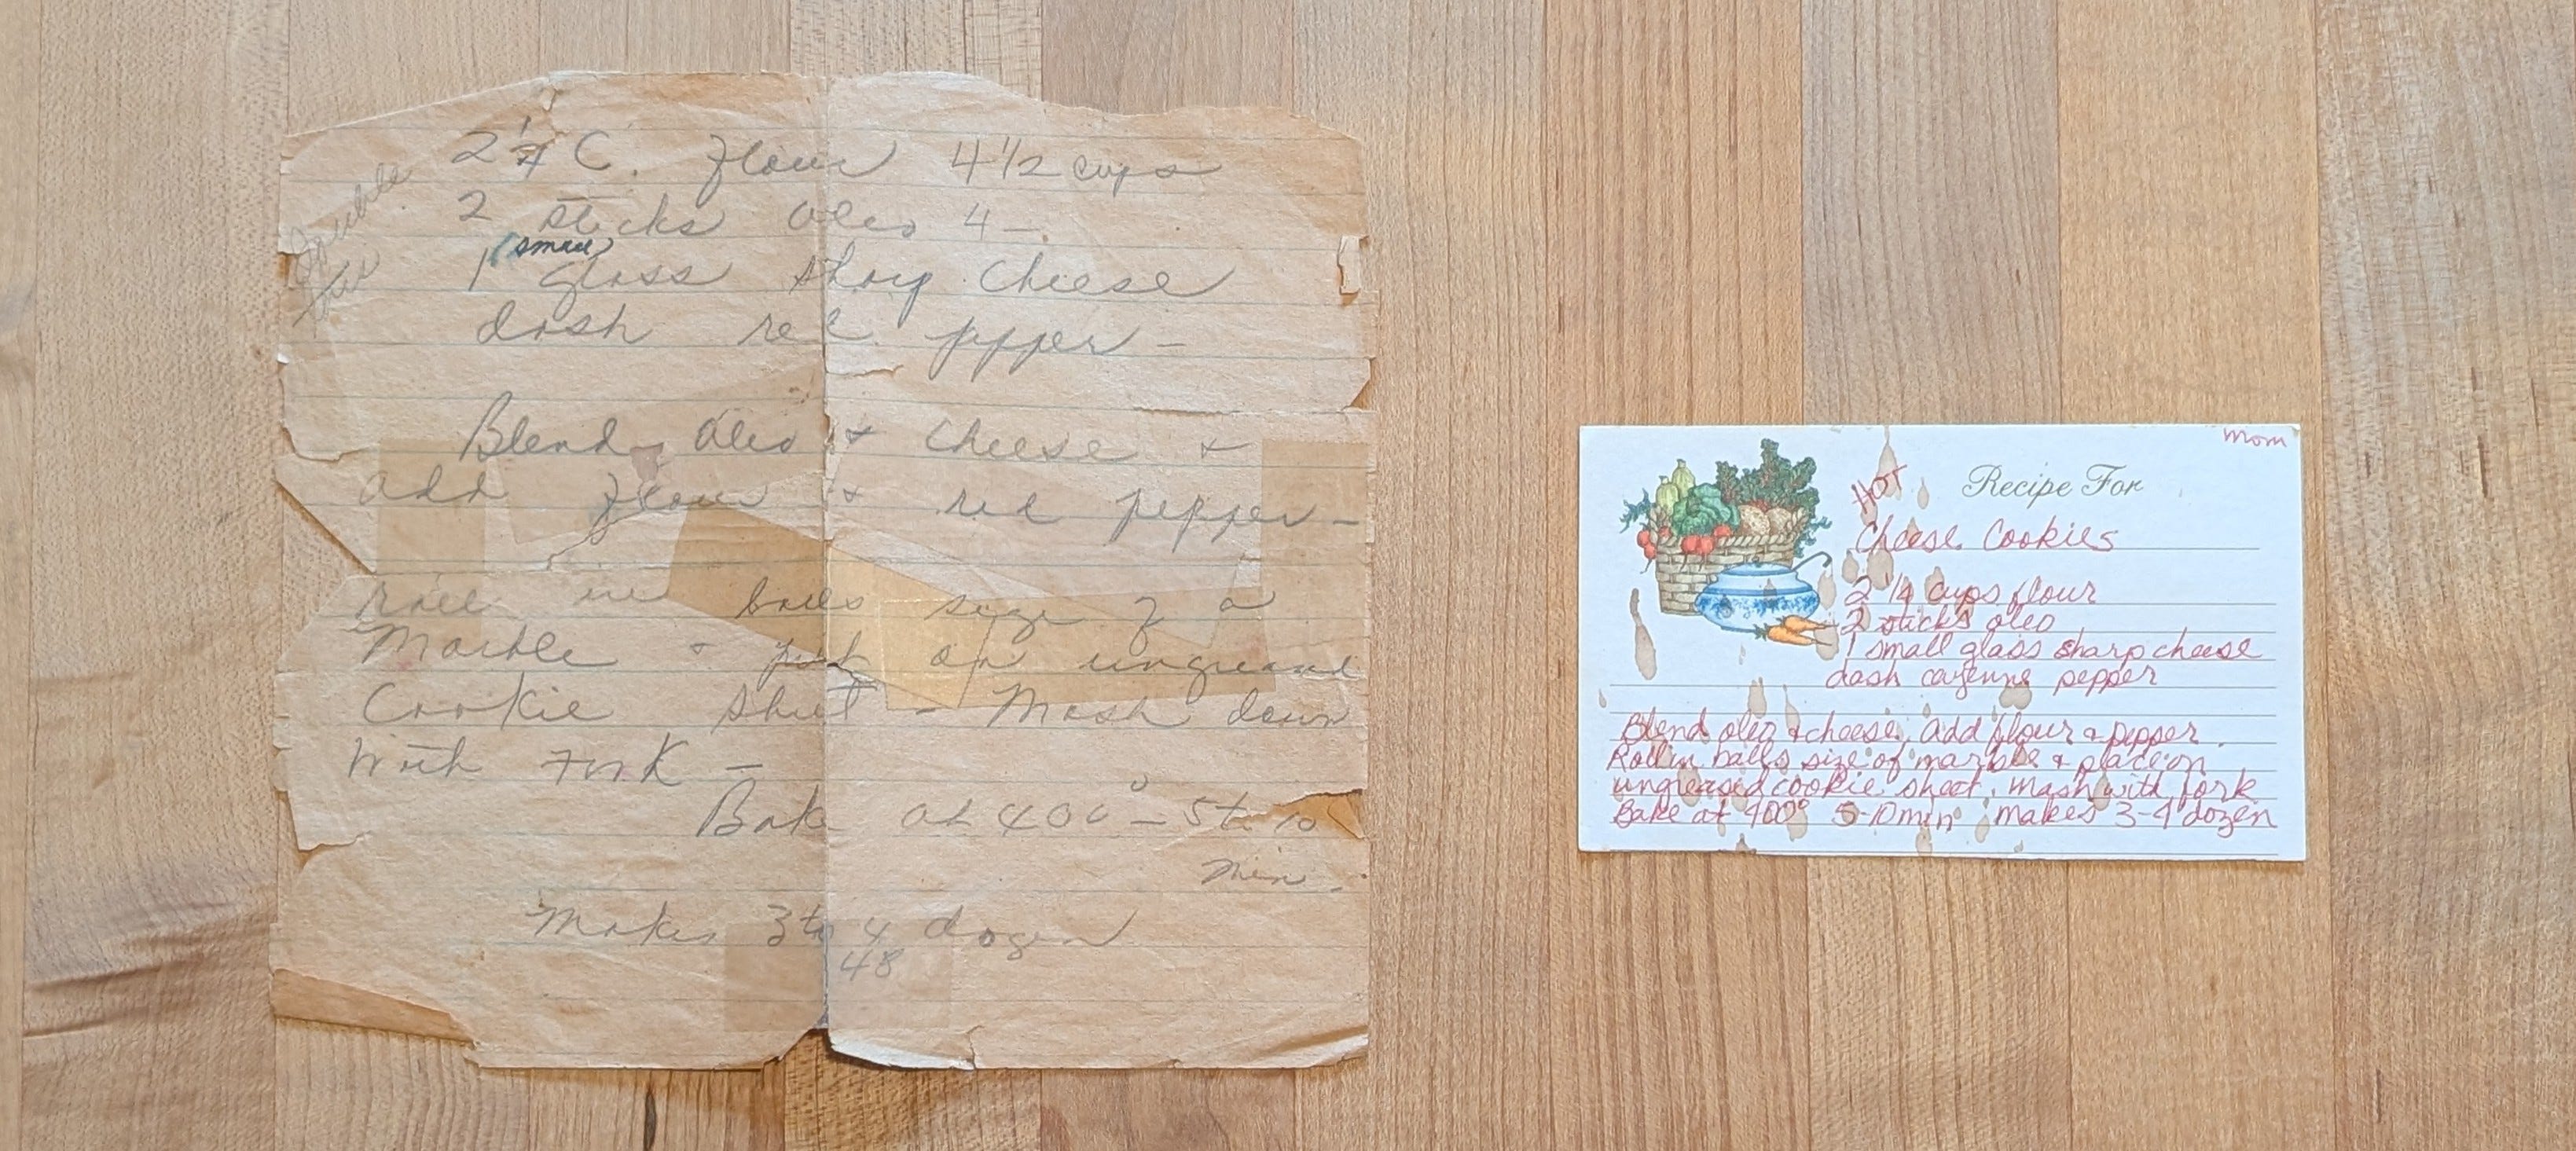 2 1/4 C. flour 4 1/2 cups
2 sticks oleo 4 -
(small)
1 glass sharp cheese
dash red pepper -
Double
Blend oleo & cheese &
add flour & red pepper -
roll in balls size of a
Marble & put on ungreased
Cookie sheet - Mash down
with fork -
Bake at 400° - 5 to 10
min.
Makes 3 to 4 dozen
48
mom
Recipe For
HOT
Cheese Cookies
2 1/4 cups flour
2 sticks oleo
1 small glass sharp cheese
dash cayenne pepper
Blend oleo & cheese. Add flour & pepper.
Roll in balls size of marble & place on
ungreased cookie sheet. Mash with fork
Bake at 400° 5-10 min makes 3-4 dozen